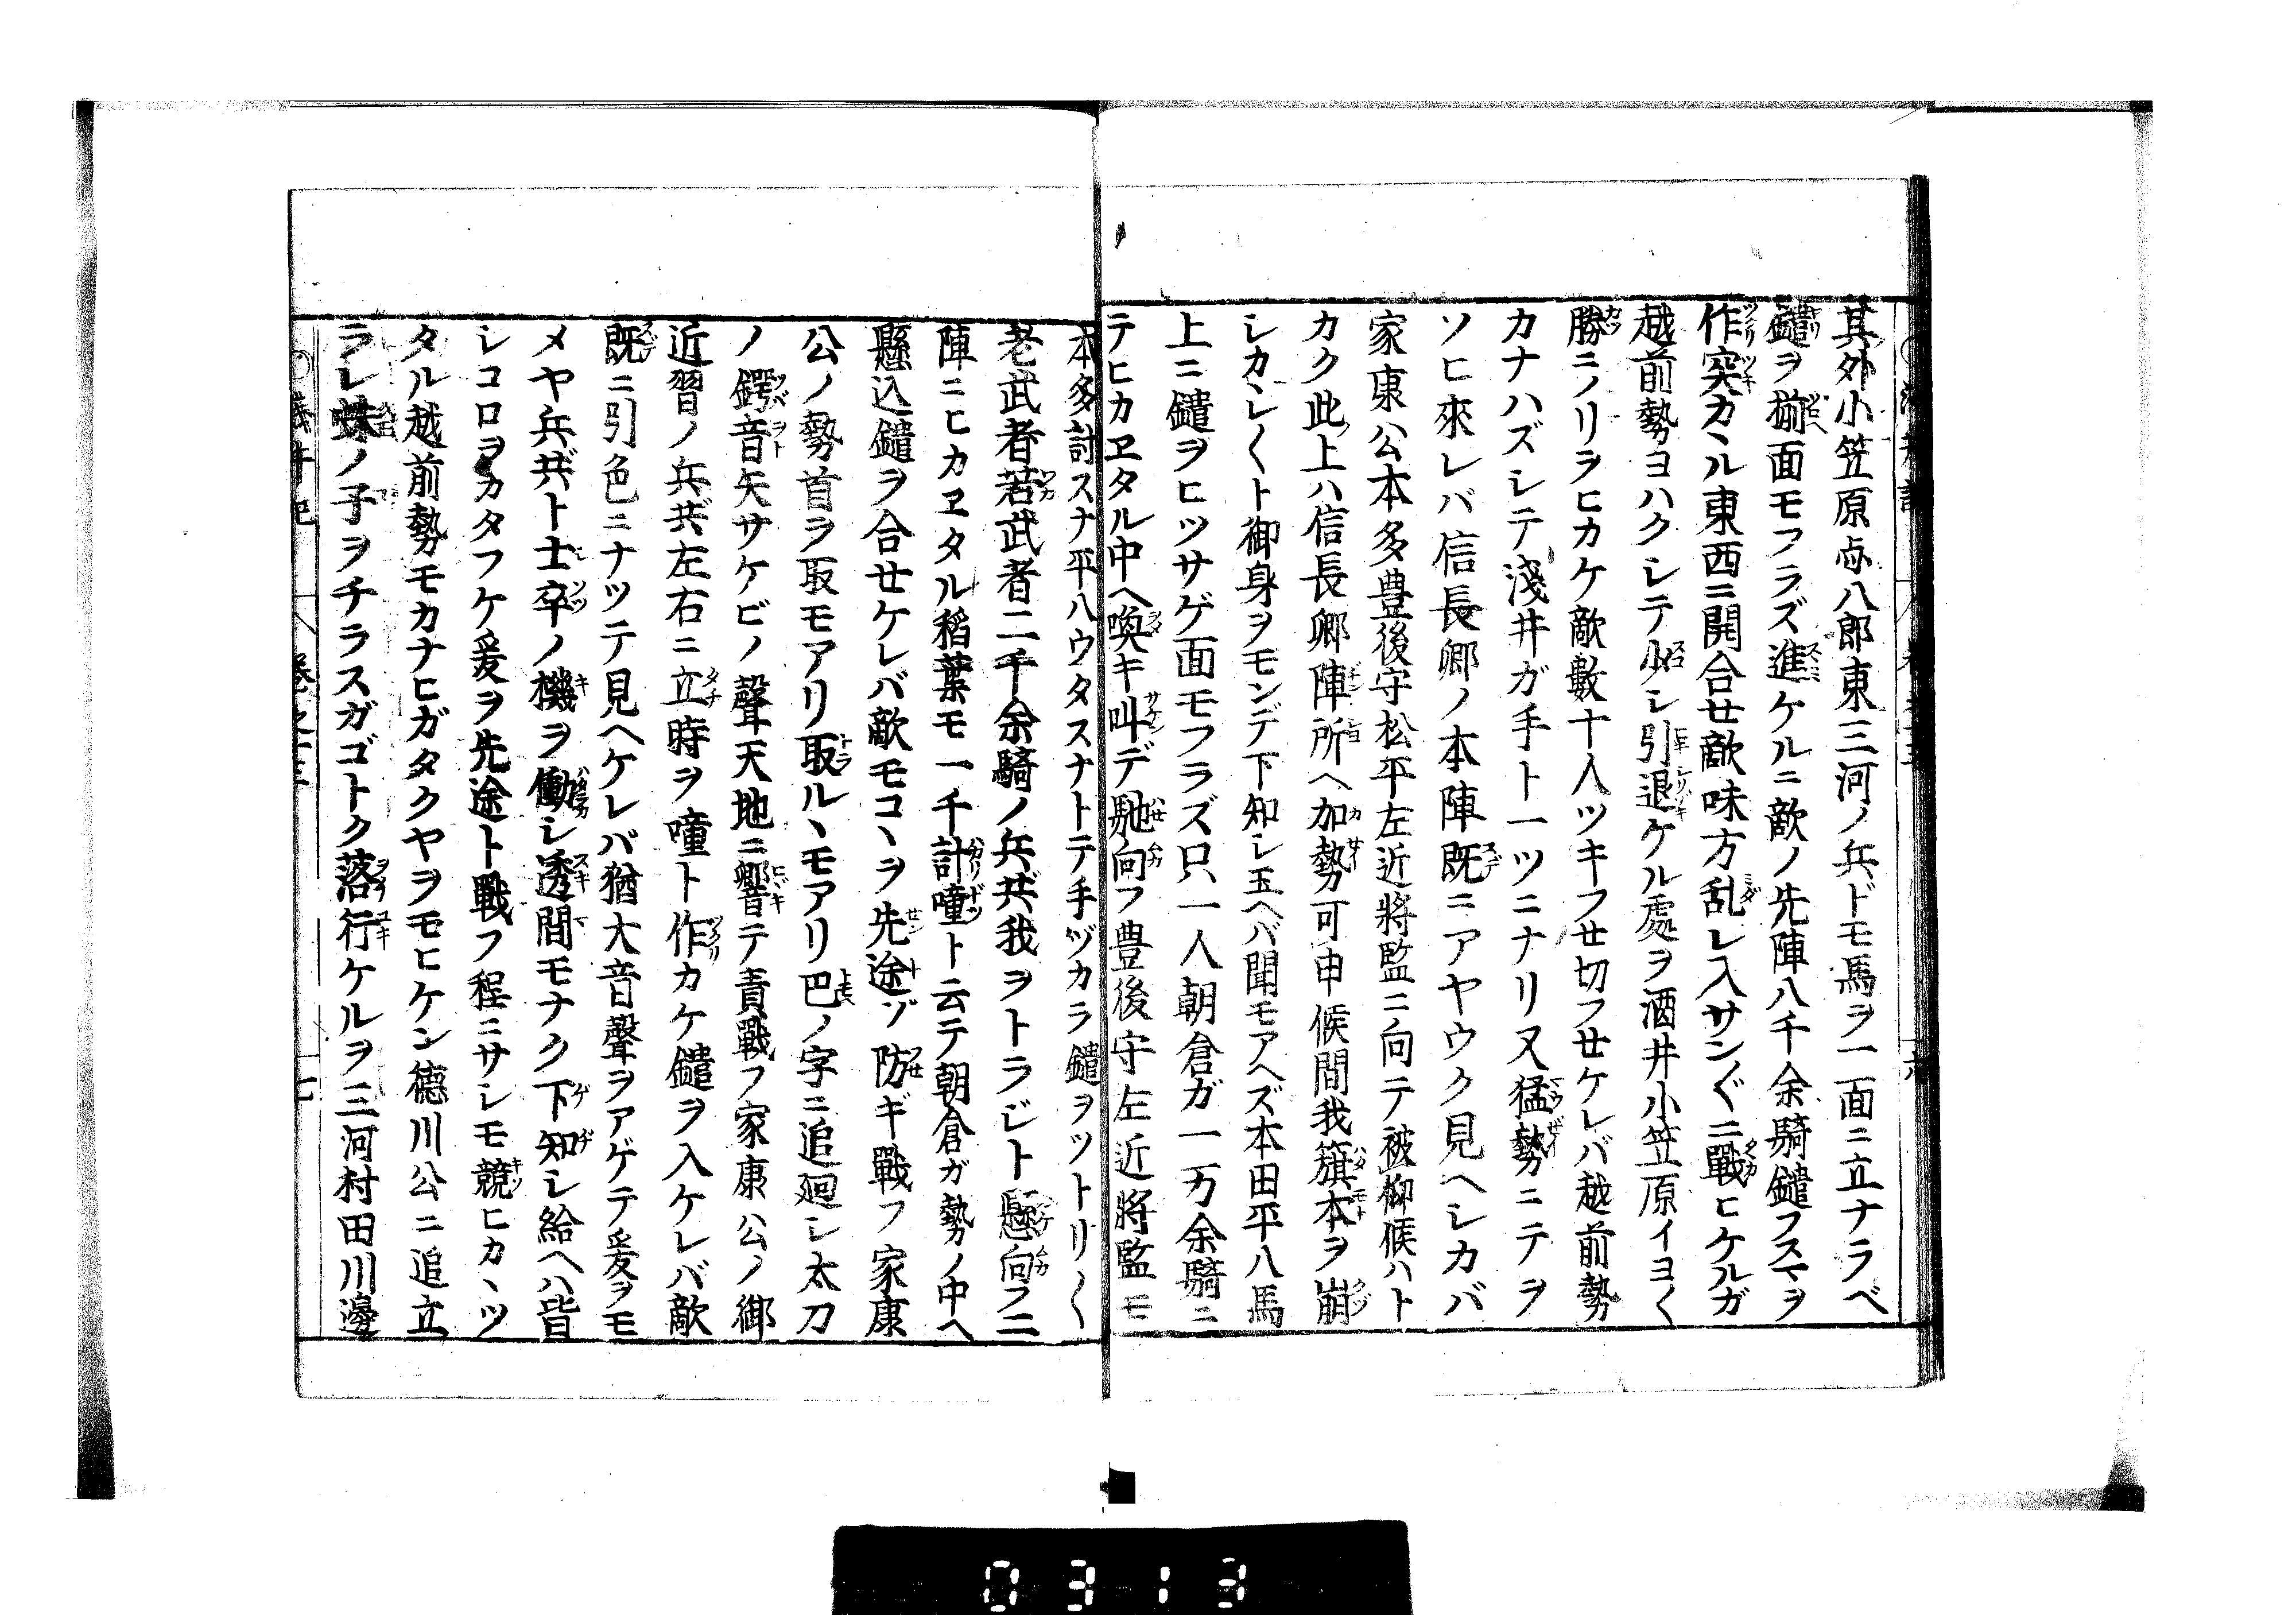 其外小笠原與八郎東三河ノ兵ドモ馬ヲ一面ニ立ナラベ
鑓ヲ揃面モフラズ進ケルニ敵ノ先陣八千余騎鑓フスマヲ
作突カヽル東西ニ開合せ敵味方乱レ入サン〴〵ニ戰ヒケルガ
越前勢ヨハクシテ少シ引退ケル處ヲ酒井小笠原イヨ〳〵
勝ニノリヲヒカケ敵數十人ツキフせ切フせケレバ越前勢
カナハズシテ淺井ガ手ト一ツニナリ又猛勢ニテヲ
ソヒ來レバ信長卿ノ本陣既ニアヤウク見ヘシカバ
家康公本多豊後守松平左近將監ニ向テ被仰候ハト
カク此上ハ信長卿陣所ヘ加勢可申候間我籏本ヲ崩
シカヽレ〳〵ト御身ヲモンデ下知シ玉ヘバ聞モアヘズ本田平八馬
上ニ鑓ヲヒツサゲ面モフラズ只一人朝倉ガ一万余騎ニ
テヒカヱタル中ヘ喚キ叫デ馳向フ豊後守左近將監モ
本多討スナ平八ウタスナトテ手ヅカラ鑓ヲツトリ〳〵
老武者若武者二千余騎ノ兵共我ヲトラジト懸向フ二
陣ニヒカヱタル稻葉モ一千計噇ト云テ朝倉ガ勢ノ中ヘ
懸込鑓ヲ合せケレバ敵モコヽヲ先途ゾ防ギ戰フ家康
公ノ勢首ヲ取モアリ取ルヽモアリ巴ノ字ニ追廻シ太刀
ノ鍔音矢サケビノ聲天地ニ響テ責戰フ家康公ノ御
近習ノ兵共左右ニ立時ヲ噇ト作カケ鑓ヲ入ケレバ敵
既ニ引色ニナツテ見ヘケレバ猶大音聲ヲアゲテ爰ヲモ
メヤ兵共ト士卒ノ機ヲ働シ透間モナク下知シ給ヘハ皆
シコロヲカタフケ爰ヲ先途ト戰フ程ニサシモ競ヒカヽツ
タル越前勢モカナヒガタクヤヲモヒケン德川公ニ追立
ラレ蛛ノ子ヲチラスガゴトク落行ケルヲ三河村田川邊